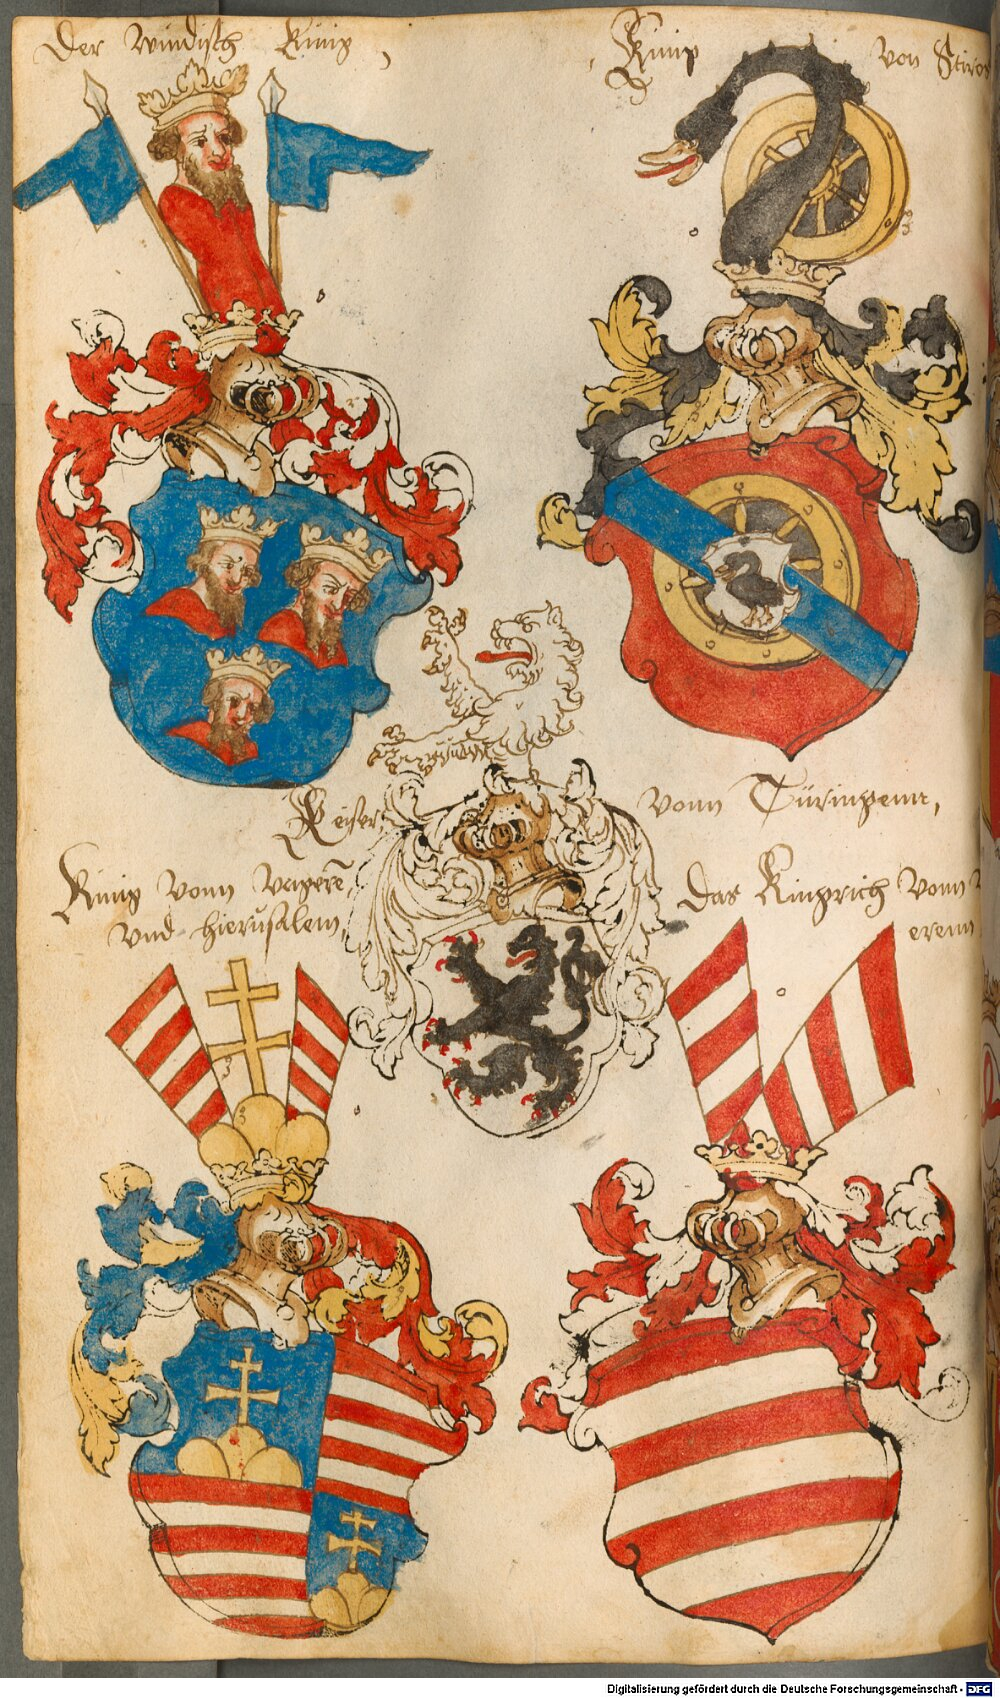 Der Windisch Künig,
Künig von
Keiser vonn Türingenn,
Künig vonn vngere
vnd hierusalem,
Das Kingrich vonn
erenn
Digitalisierung gefördert durch die Deutsche Forschungsgemeinschaft - DFG